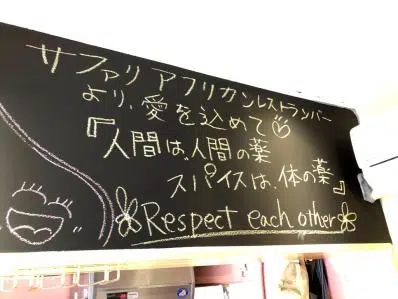 サファリアフリカンレストランバー
より、愛を込めて♡
『人間は、人間の薬
スパイスは、体の薬』
Respect each other